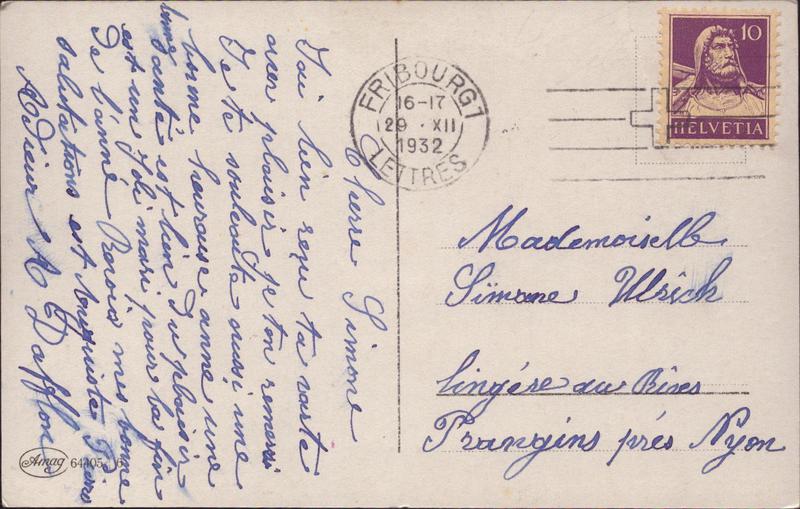 Cherre Simone
J'ai bien reçu ta carte
avec plaisir je ten remersi
Je te souhaite aussi une
bonne heureuse anné une
bonne santé est bien du plaisir
est un joli mari pour la fin
De l'anné Renoi mes bonne
salutations est
Adieu A Dafflon
FRIBOURG 1
16-17
29 · XII
1932
LETTRES
10
HELVETIA
Mademoiselle
Simone Ulrich
lingére au Rives
Prangins prés Nyon
Amag 64405